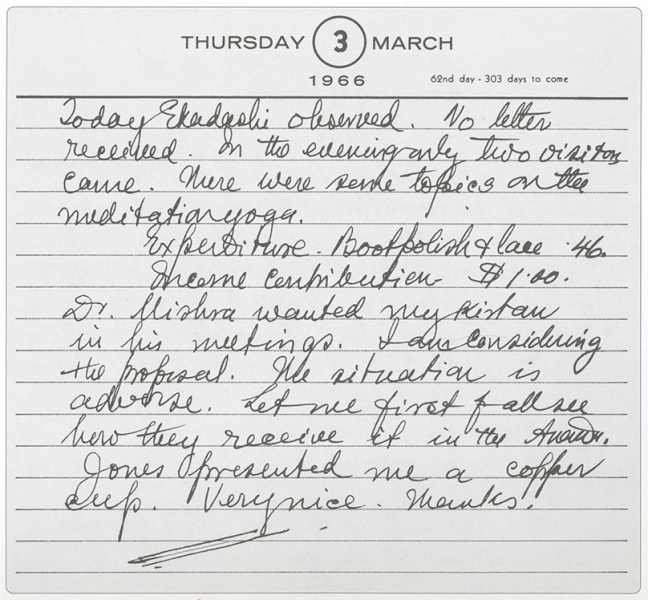 THURSDAY 3 MARCH
1966
62nd day - 303 days to come
Today Ekadashi observed. No letter
received. In the evening only two visitors
came. There were some topics on the
meditation yoga.
Expenditure. Bootpolish & lace .46.
Income contribution $1.00.
Dr. Mishra wanted my kirtan
in his meetings. I am considering
the proposal. The situation is
adverse. Let me first of all see
how they receive it in the
Jones presented me a copper
cup. Very nice. Thanks.